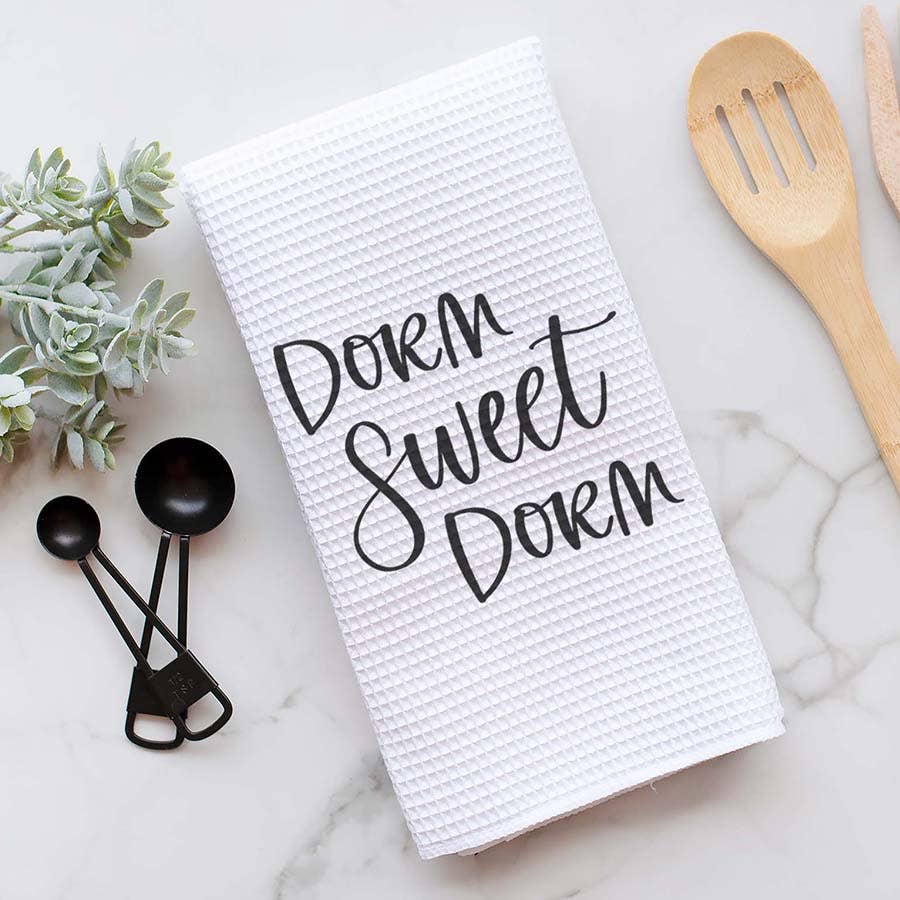 Dorm
Sweet
Dorm